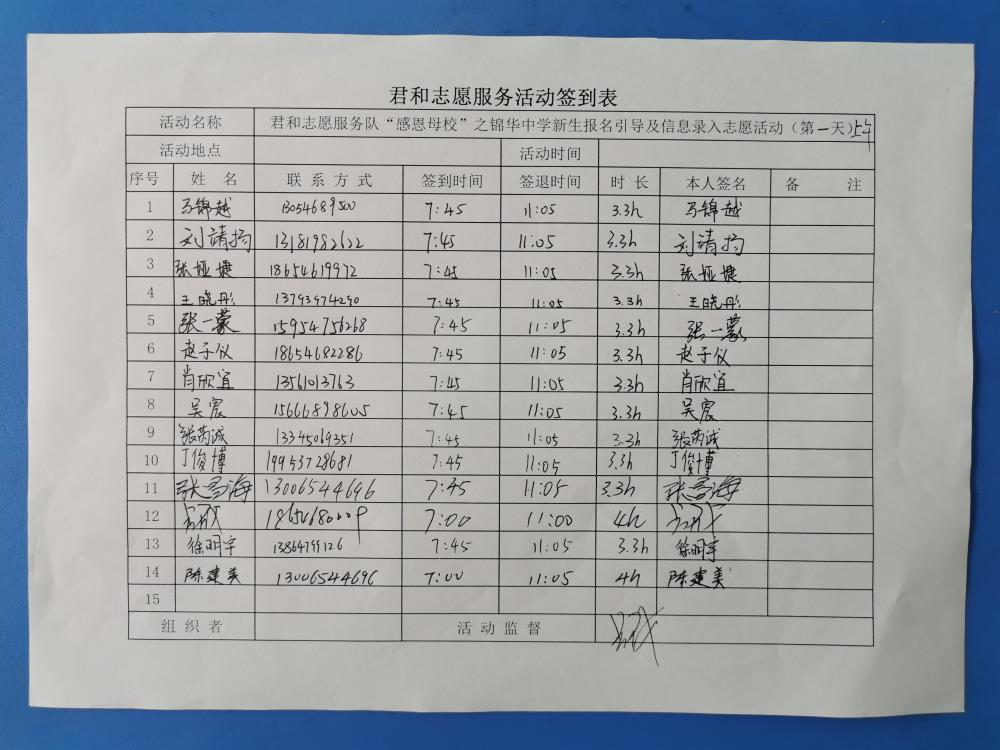 君和志愿服务活动签到表
活动名称 君和志愿服务队“感恩母校”之锦华中学新生报名引导及信息录入志愿活动（第一天）上午
活动地点 活动时间
序号 姓 名 联系方式 签到时间 签退时间 时 长 本人签名 备 注
1 马锦越 13054689500 7:45 11:05 3.3h 马锦越
2 刘靖扬 13181982622 7:45 11:05 3.3h 刘靖扬
3 张娅婕 18654619972 7:45 11:05 3.3h 张娅婕
4 王晓彤 13793974290 7:45 11:05 3.3h 王晓彤
5 张一蒙 15954756268 7:45 11:05 3.3h 张一蒙
6 赵子仪 18654682286 7:45 11:05 3.3h 赵子仪
7 肖欣宜 13561013763 7:45 11:05 3.3h 肖欣宜
8 吴宸 15666898605 7:45 11:05 3.3h 吴宸
9 张芮诚 13345069351 7:45 11:05 3.3h 张芮诚
10 丁俊博 19953728681 7:45 11:05 3.3h 丁俊博
11 13006544696 7:45 11:05 3.3h
12 7:00 11:00 4h
13 徐明宇 13864799126 7:45 11:05 3.3h 徐明宇
14 陈建美 13006544696 7:00 11:05 4h 陈建美
15
组织者 活动监督